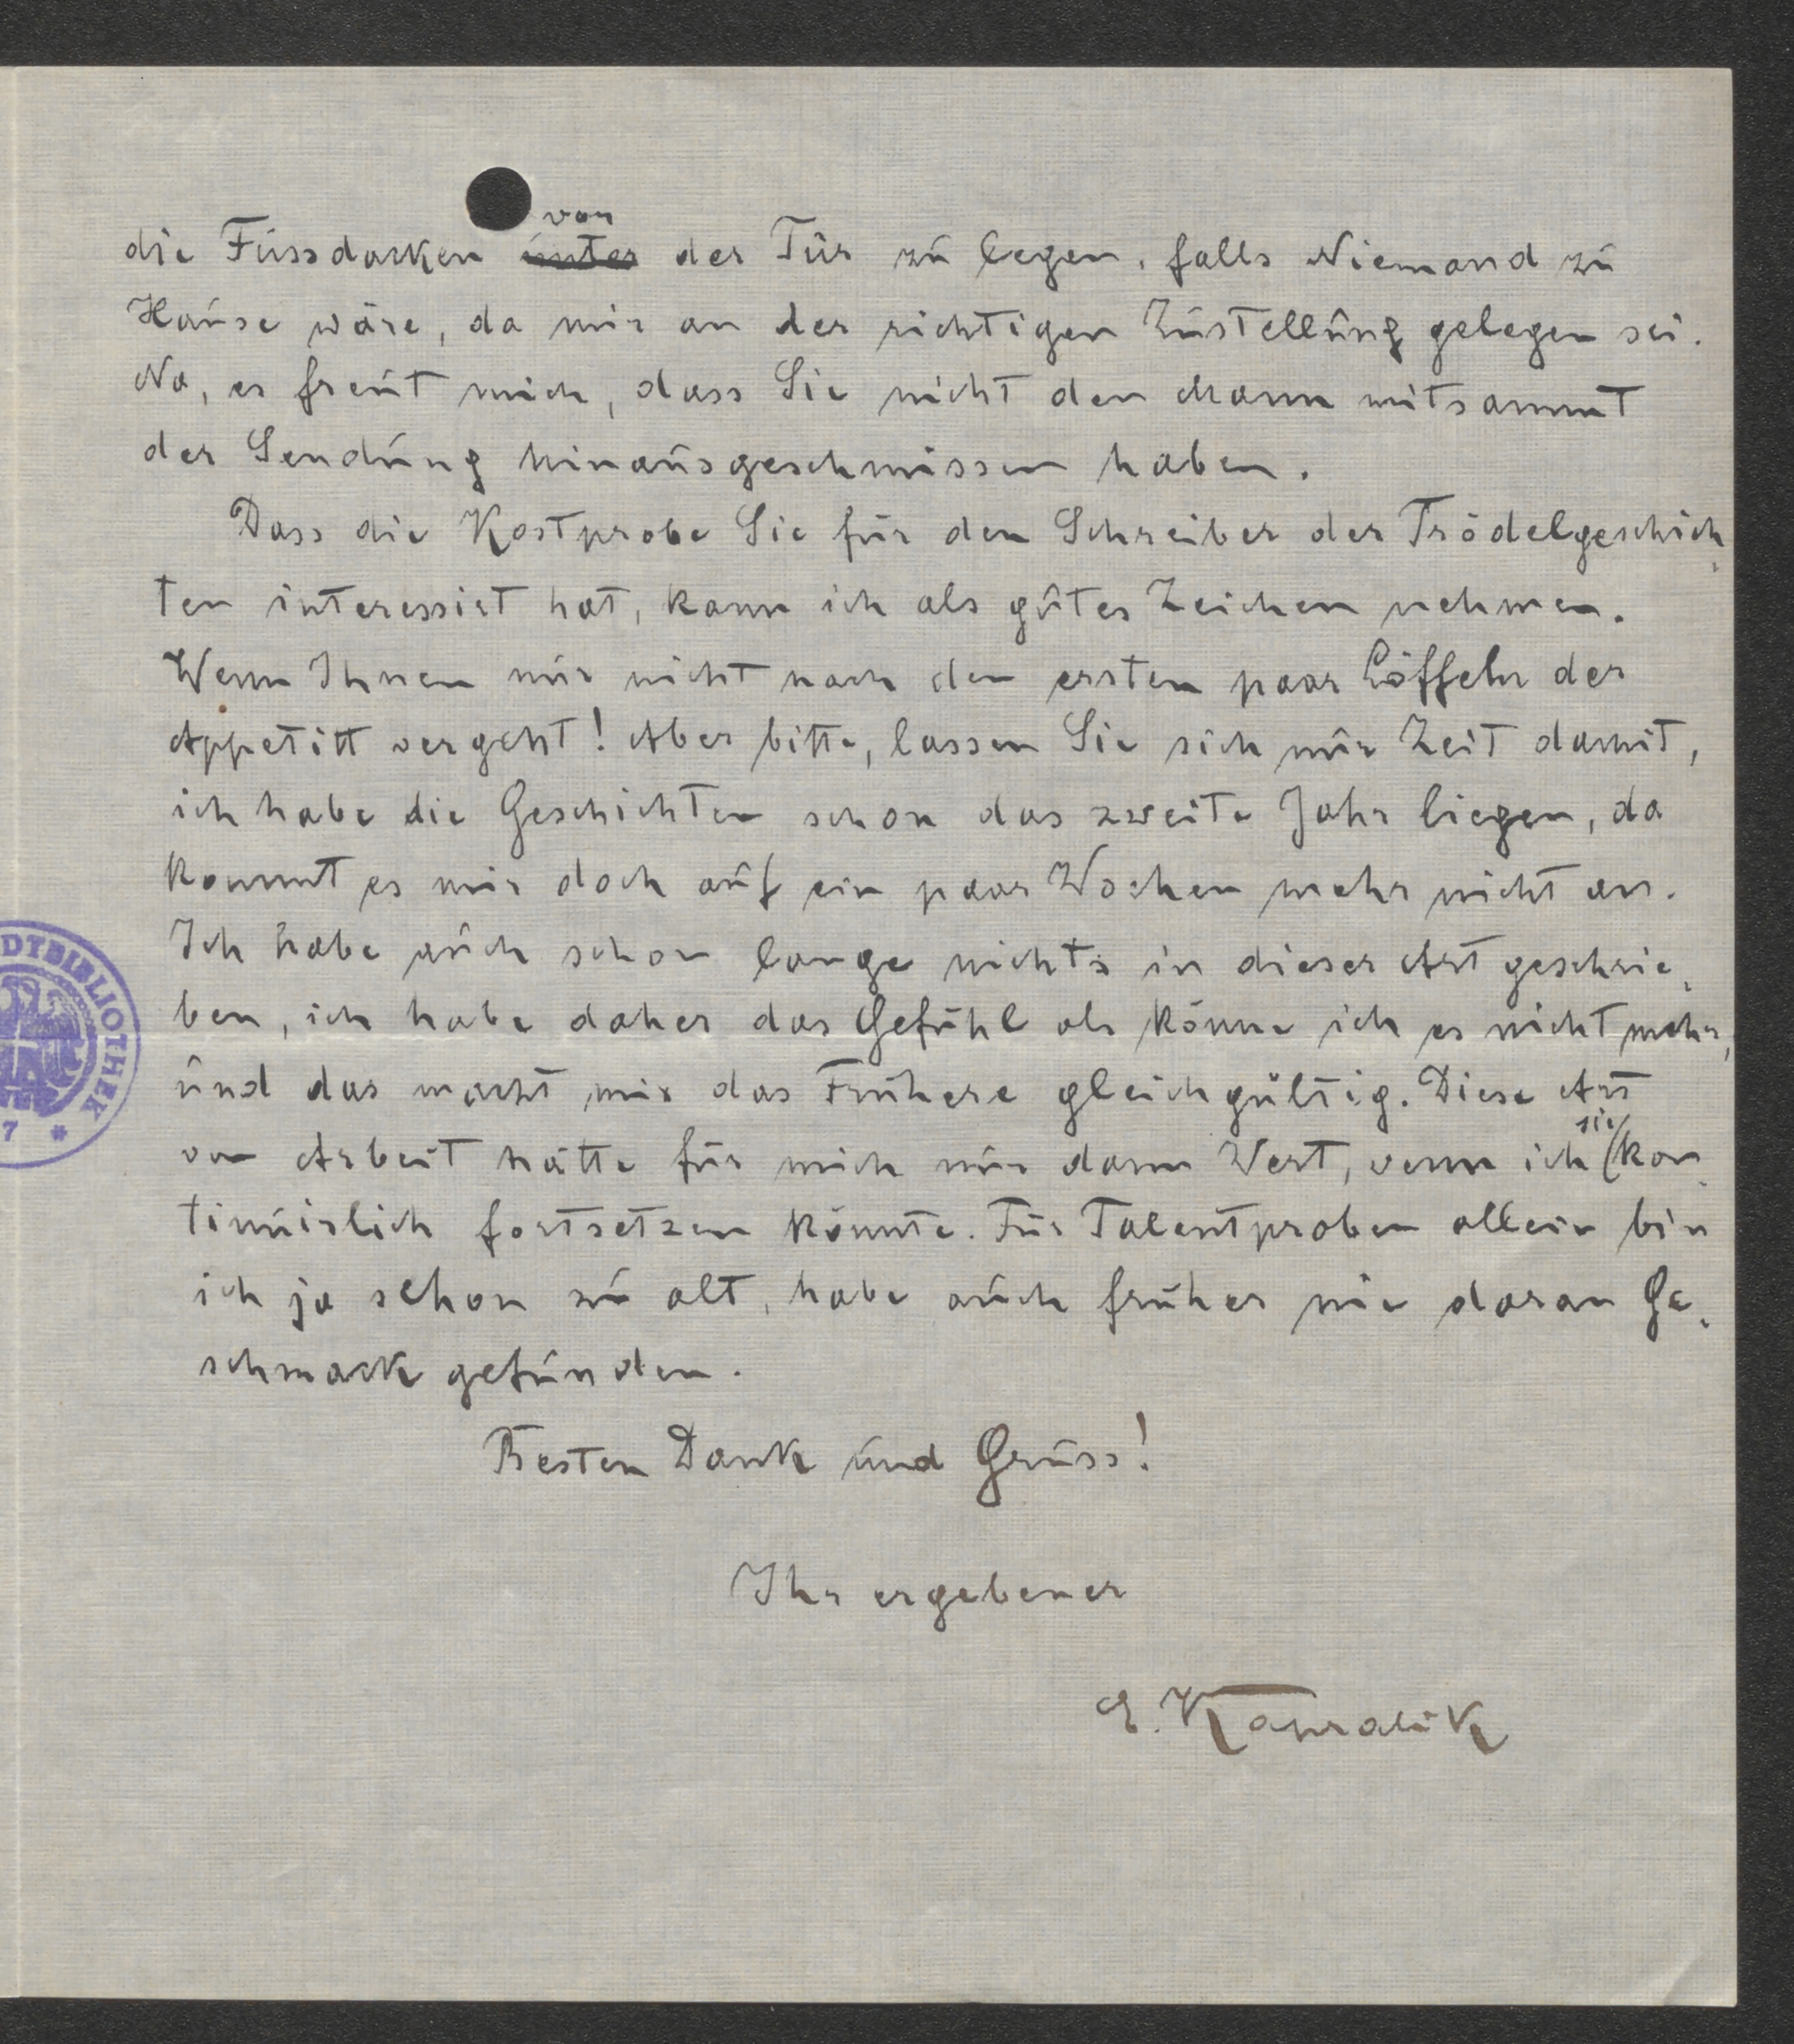 die Fussdacken vor
unter der Tür zu legen, falls Niemand zu
Hause wäre, da mir an der richtigen Zustellung gelegen sei.
Na, es freut mich, dass Sie nicht den Mann mitsammt
der Sendung hinausgeschmissen haben.
Dass die Kostprobe Sie für den Schreiber der Trödelgeschich-
ten interessirt hat, kann ich als gutes Zeichen nehmen.
Wenn Ihnen nur nicht nach den ersten paar Löffeln der
Appetitt vergeht! Aber bitte, lassen Sie sich nur Zeit damit,
ich habe die Geschichten schon das zweite Jahr liegen, da
kommt es mir doch auf ein paar Wochen mehr nicht an.
Ich habe auch schon lange nichts in dieser Art geschrie-
ben, ich habe daher das Gefühl als könne ich es nicht mehr,
und das macht mir das Frühere gleichgültig. Diese Art
von Arbeit hätte für mich nur dann Wert, wenn ich sie kon-
tinuirlich fortsetzen könnte. Für Talentproben allein bin
ich ja schon zu alt, habe auch früher nie daran Ge-
schmack gefunden.
Besten Dank und Gruss!
Ihr ergebener
E. Kapralik
DTBIBLIOTHEK
7 *